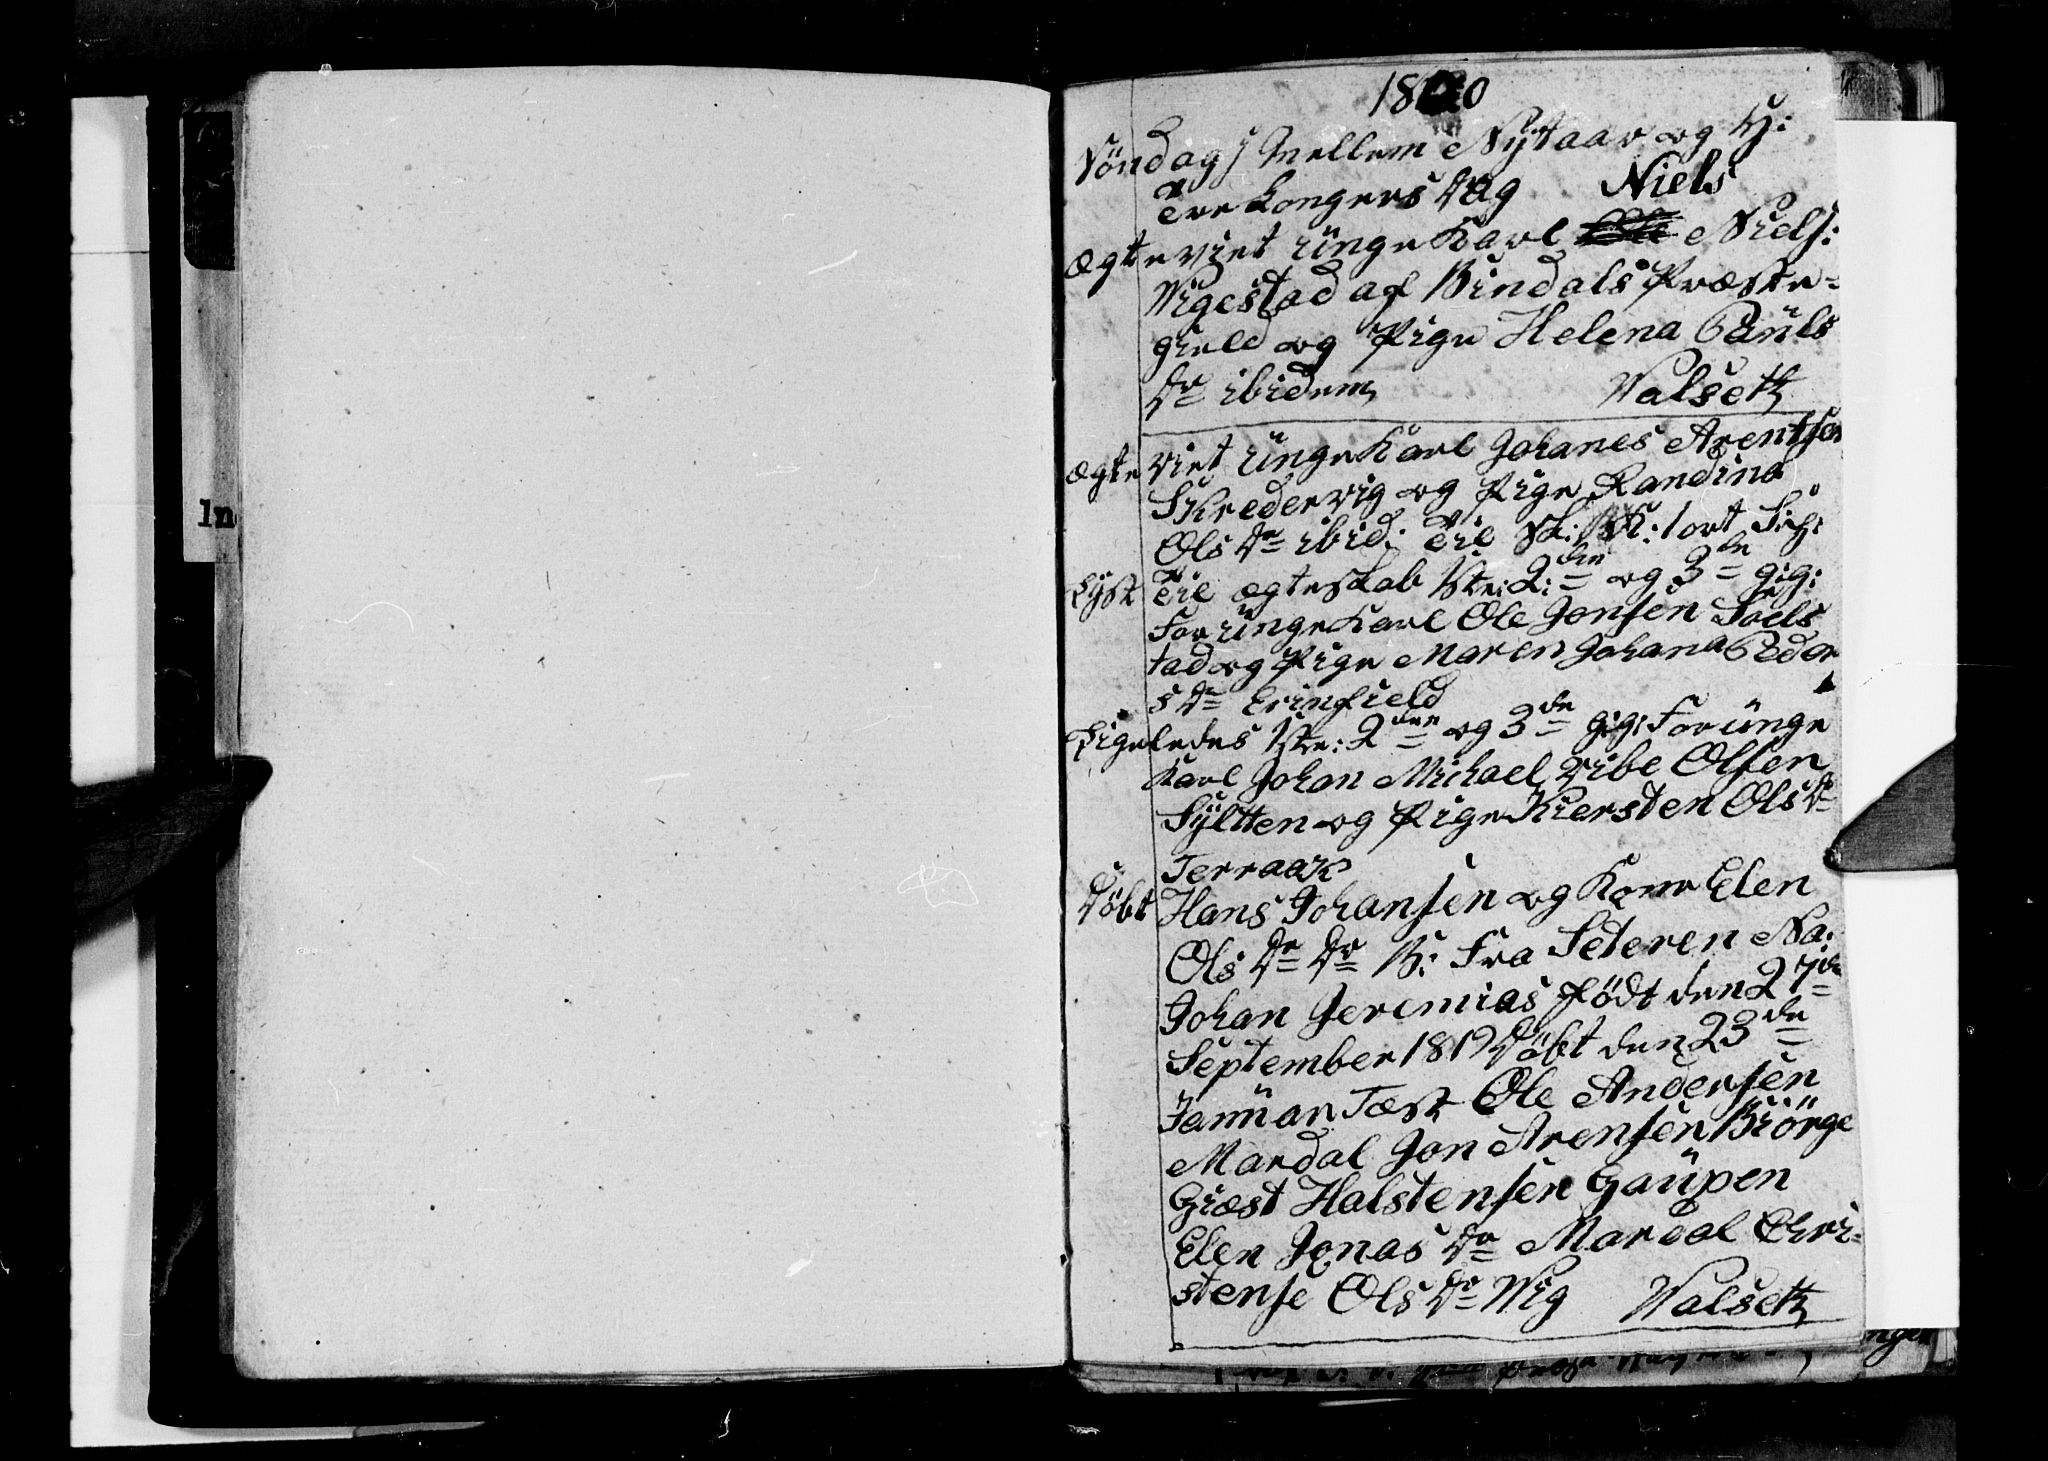 1820
Söndag j Mellem Nÿtaar og H:
Tre kongers Dag Niels
Ægte viet ünge Karl Niels:
Wigestad af Bindals Præste=
gield og Pige Helena Paüls
Dr ibidem, Valseth
Ægte viet ünge Karl Johanes Arentsen
Skredervig og Pige Randina
Ols Dr ibid:
Lÿst Til ægteskab 1ste: 2:den og 3de g:g:
For ünge Karl Ole Jonsen Soels
tad og Pige Maren Johana Peder
s Dr Erinfield
Ligeledes 1ste: 2den og 3de g:g: For ünge
Karl Johan Michael Vibe Olsen
Sÿltten og Pige Kiersten Ols Dr
Terraak
Döbt Hans Johansen og Kone Elen
Ols Dr Dr B: Fra Seteren Na:
Johan Jeremias födt den 27de
September 1819 Döbt den 23de
Janüar Test Ole Andersen
Mardal Jon Arensen Biörge
Giæst Halstensen Gaüpen
Elen Jonas Dr Mardal Chri=
stense Ols Dr Wig Valseth